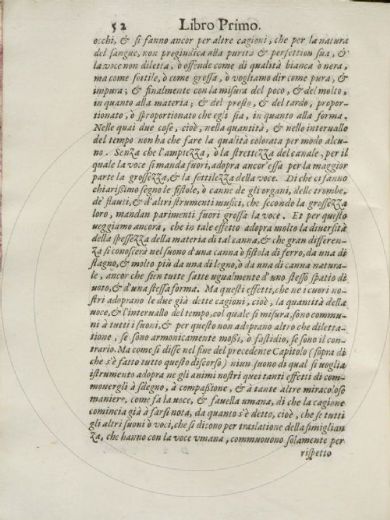 52 Libro Primo.
occhi, & si fanno ancor per altre cagioni, che per la natura
del sangue, non pregiudica alla purità & perfettion sua, &
la voce non diletta, ò offende come di qualità bianca ò nera,
ma come sottile, ò come grossa, ò vogliamo dir come pura, &
impura; & finalmente con la misura del poco, & del molto,
in quanto alla materia; & del presto, & del tardo, propor-
tionato, ò sproportionato che egli sia, in quanto alla forma.
Nelle quai due cose, cioè, nella quantità, & nello interuallo
del tempo non ha che fare la qualità colorata per modo alcu-
no. Senza che l'ampiezza, ò la strettezza del canale, per il
quale la voce si manda fuori, adopra ancor'essa per la maggior
parte la grossezza, & la sottilezza della voce. Di che ci fanno
chiarissimo segno le fistole, ò canne de gli organi, delle trombe,
de' flauti, & d'altri strumenti musici, che secondo la grossezza
loro, mandan parimenti fuori grossa la voce. Et per questo
veggiamo ancora, che in tale effetto adopra molto la diuersità
della spessezza della materia di tal canna, & che gran differen-
za si conoscerà nel suono d'una canna ò fistola di ferro, da una di
stagno, & molto più da una di legno, ò da una di canna natura-
le, ancor che sien tutte fatte ugualmente d'uno stesso spatio di
voto, & d'una stessa forma. Ma questi effetti, che ne i cuori no-
stri adoprano le due già dette cagioni, cioè, la quantità della
voce, & l'interuallo del tempo, col quale si misura, sono commu-
ni à tutti i suoni, & per questo non adoprano altro che diletta-
tione, se sono armonicamente mossi, ò fastidio, se sono il con-
trario. Ma come si disse nel fine del precedente Capitolo (sopra di
che s'è fatto tutto questo discorso) niun suono di qual si voglia
istrumento adopra ne gli animi nostri quei tanti effetti di com-
mouergli à sdegno, à compassione, & à tante altre miracolose
maniere, come fa la voce, & fauella umana, di che la cagione
comincia già à farsi nota, da quanto s'è detto, cioè, che se tutti
gli altri suoni ò voci, che si dicono per traslatione della simiglian-
za, che hanno con la voce vmana, commuouono solamente per
rispetto